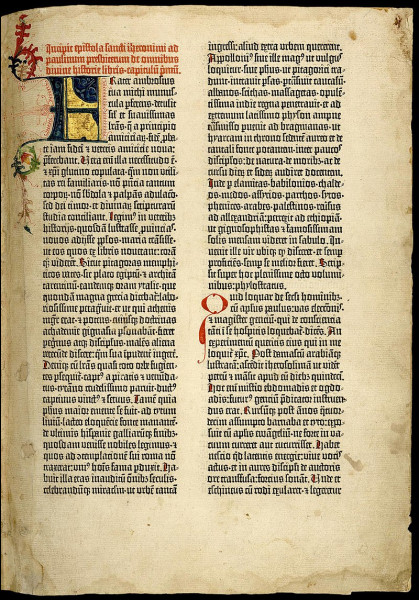 Incipit epistola sancti iheronimi ad
paulinum presbiterum de omnibus
divine historie libris capitulū pmū.
Frater ambrosius
tua michi munus-
cula pferens·detulit
sīl et suavissimas
lrās·q̄ a principio
amiciciaꝝ·fidē pba-
te iam fidei et veteris amicicie nova:
pferebant. Vera eni illa necessitudo ē·
et xpī glutino copulata·qm̄ non vtili-
tas rei familiaris·nō pn̄cia tantum
corpoꝝ·nō sbdola et palpans adulatō·
sed dei timor·et divinaꝝ scripturarū
studia conciliant. Legim⁹ in veteribꝰ
historijs·quosdā lustrasse puincias·
novos adijsse pplos·maria trāsisse·
ut eos quos ex libris noverant: corā
qꝫ viderēt. Sicut pitagoras memphi-
ticos vates·sic plato egiptū·et architā
tarentinū·eandemqꝫ oram ytalie·que
quondā magna grecia dicebat̄·labo-
riosissime pagravit·et ut qui athenis
mgr̄ erat·et potens·cuiusqꝫ doctrinas
achademie gignasia psonabāt·fieret
peginus atqꝫ discipulus·malēs aliena
verecūde discere:qm̄ sua īpudent̄ ingerē.
Deniqꝫ cū lrās quasi toto orbe fugien-
tes psequit̄·capt⁹ a piratis et venūda-
tus·tyrāno crudelissimo paruit·duct⁹
captivus vinct⁹ et servus. Tamē quia
phūs maior emente se fuit·ad tytum
liviū·lacteo eloquētie fonte manan-
tē·de vltimis hispanie galliarūqꝫ finibꝰ·
quosdam venisse nobiles legimus·et
quos ad cōtemplationē sui roma nō
traxerat:uni⁹ hoīs fama pduxit. Ha-
buit illa etas inauditū omībꝰ seculis·
celebrandūqꝫ miraculum·ut vrbē tantā
ingressi:aliud extra vrbem quererent.
Apolloni⁹ sive ille mag⁹ ut vulg⁹
loquitur·sive phūs·ut pitagorici tra-
dunt·intravit psas·ptrāsivit caucasū·
albanos·scithas·massagetas·opulē-
tissima indie regna penetravit·et ad
extremum latissimo physon ampne
trāsmisso puenit ad bragmanas·ut
hyarcam in throno sedentē aureo·et de
tantali fonte potantem·inter paucos
discipulos·de natura·de moribꝰ·ac de
cursu dierū et siderū audiret docentem.
Inde p elamitas·babilonios·chalde-
os·medos·assirios·parthos·syros·
phenices·arabes·palestinos·reversus
ad allexandriā:perrexit ad ethiopiā·
ut gignosophistas et famosissimam
solis mensam videret in sabulo. In-
venit ille vir vbiqꝫ qd̄ disceret·et semp
proficiēs·semp se melior fieret. Scrip-
sit super hoc plenissime octo volumi-
nibus:phylostratus.
Quid loquar de sēcli hominibꝰ·
cū apl̄us paulus:vas electōis·
et magister gentiū·qui de conscientia
tāti i se hospitis loquebat̄·dicēs. An
experimentū queritis eius qui in me
loquit̄ xpc̄. Post damascū arabiāqꝫ
lustratā:ascēdit iherosolimā ut videt
petrū et māsit apud eū diebꝰ quindeci.
Hoc eni misterio ebdomadis et ogdo-
adis:futur⁹ gentiū p̄dicator instruen-
dus erat. Rursūqꝫ post ānos q̄tuor-
decim assumpto barnaba et tyto:expo-
suit cū apl̄is euvangeliū·ne forte in va-
cuum curreret aut cucurrisset. Habet
nescio qd̄ latentis energie:vive vocis
actus·et in aures discipli de auctoris
ore transfusa:forcius sonat. Vnde et
eschineus cū rodi exularet·et legeretur